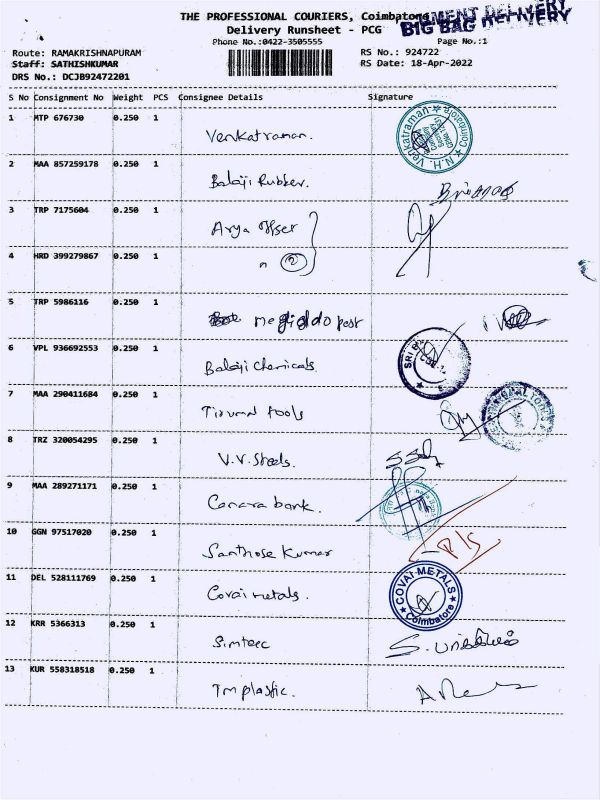 THE PROFESSIONAL COURIERS, Coimbatore
Delivery Runsheet - PCG
BIG BAG DELIVERY
Phone No.:0422-3505555
Page No.:1
Route: RAMAKRISHNAPURAM
RS No.: 924722
Staff: SATHISHKUMAR
RS Date: 18-Apr-2022
DRS No.: DCJB92472201
S No Consignment No Weight PCS Consignee Details Signature
1 MTP 676730 0.250 1 Venkatraman.
N.H. Venkatraman
Coimbatore
2 MAA 857259178 0.250 1 Balaji Rubber.
3 TRP 7175604 0.250 1 Arya offset
4 HRD 399279867 0.250 1 " 2
5 TRP 5986116 0.250 1
6 VPL 936692553 0.250 1 Balaji Chemicals
SRI
7 MAA 290411684 0.250 1 Tirumal tools
8 TRZ 320054295 0.250 1 V.V. Steels.
9 MAA 289271171 0.250 1 Canara bank.
10 GGN 97517020 0.250 1 Santhose Kumar
11 DEL 528111769 0.250 1 Covai metals.
COVAI METALS
Coimbatore
12 KRR 5366313 0.250 1 Simtec
13 KUR 558318518 0.250 1 Tmplastic.